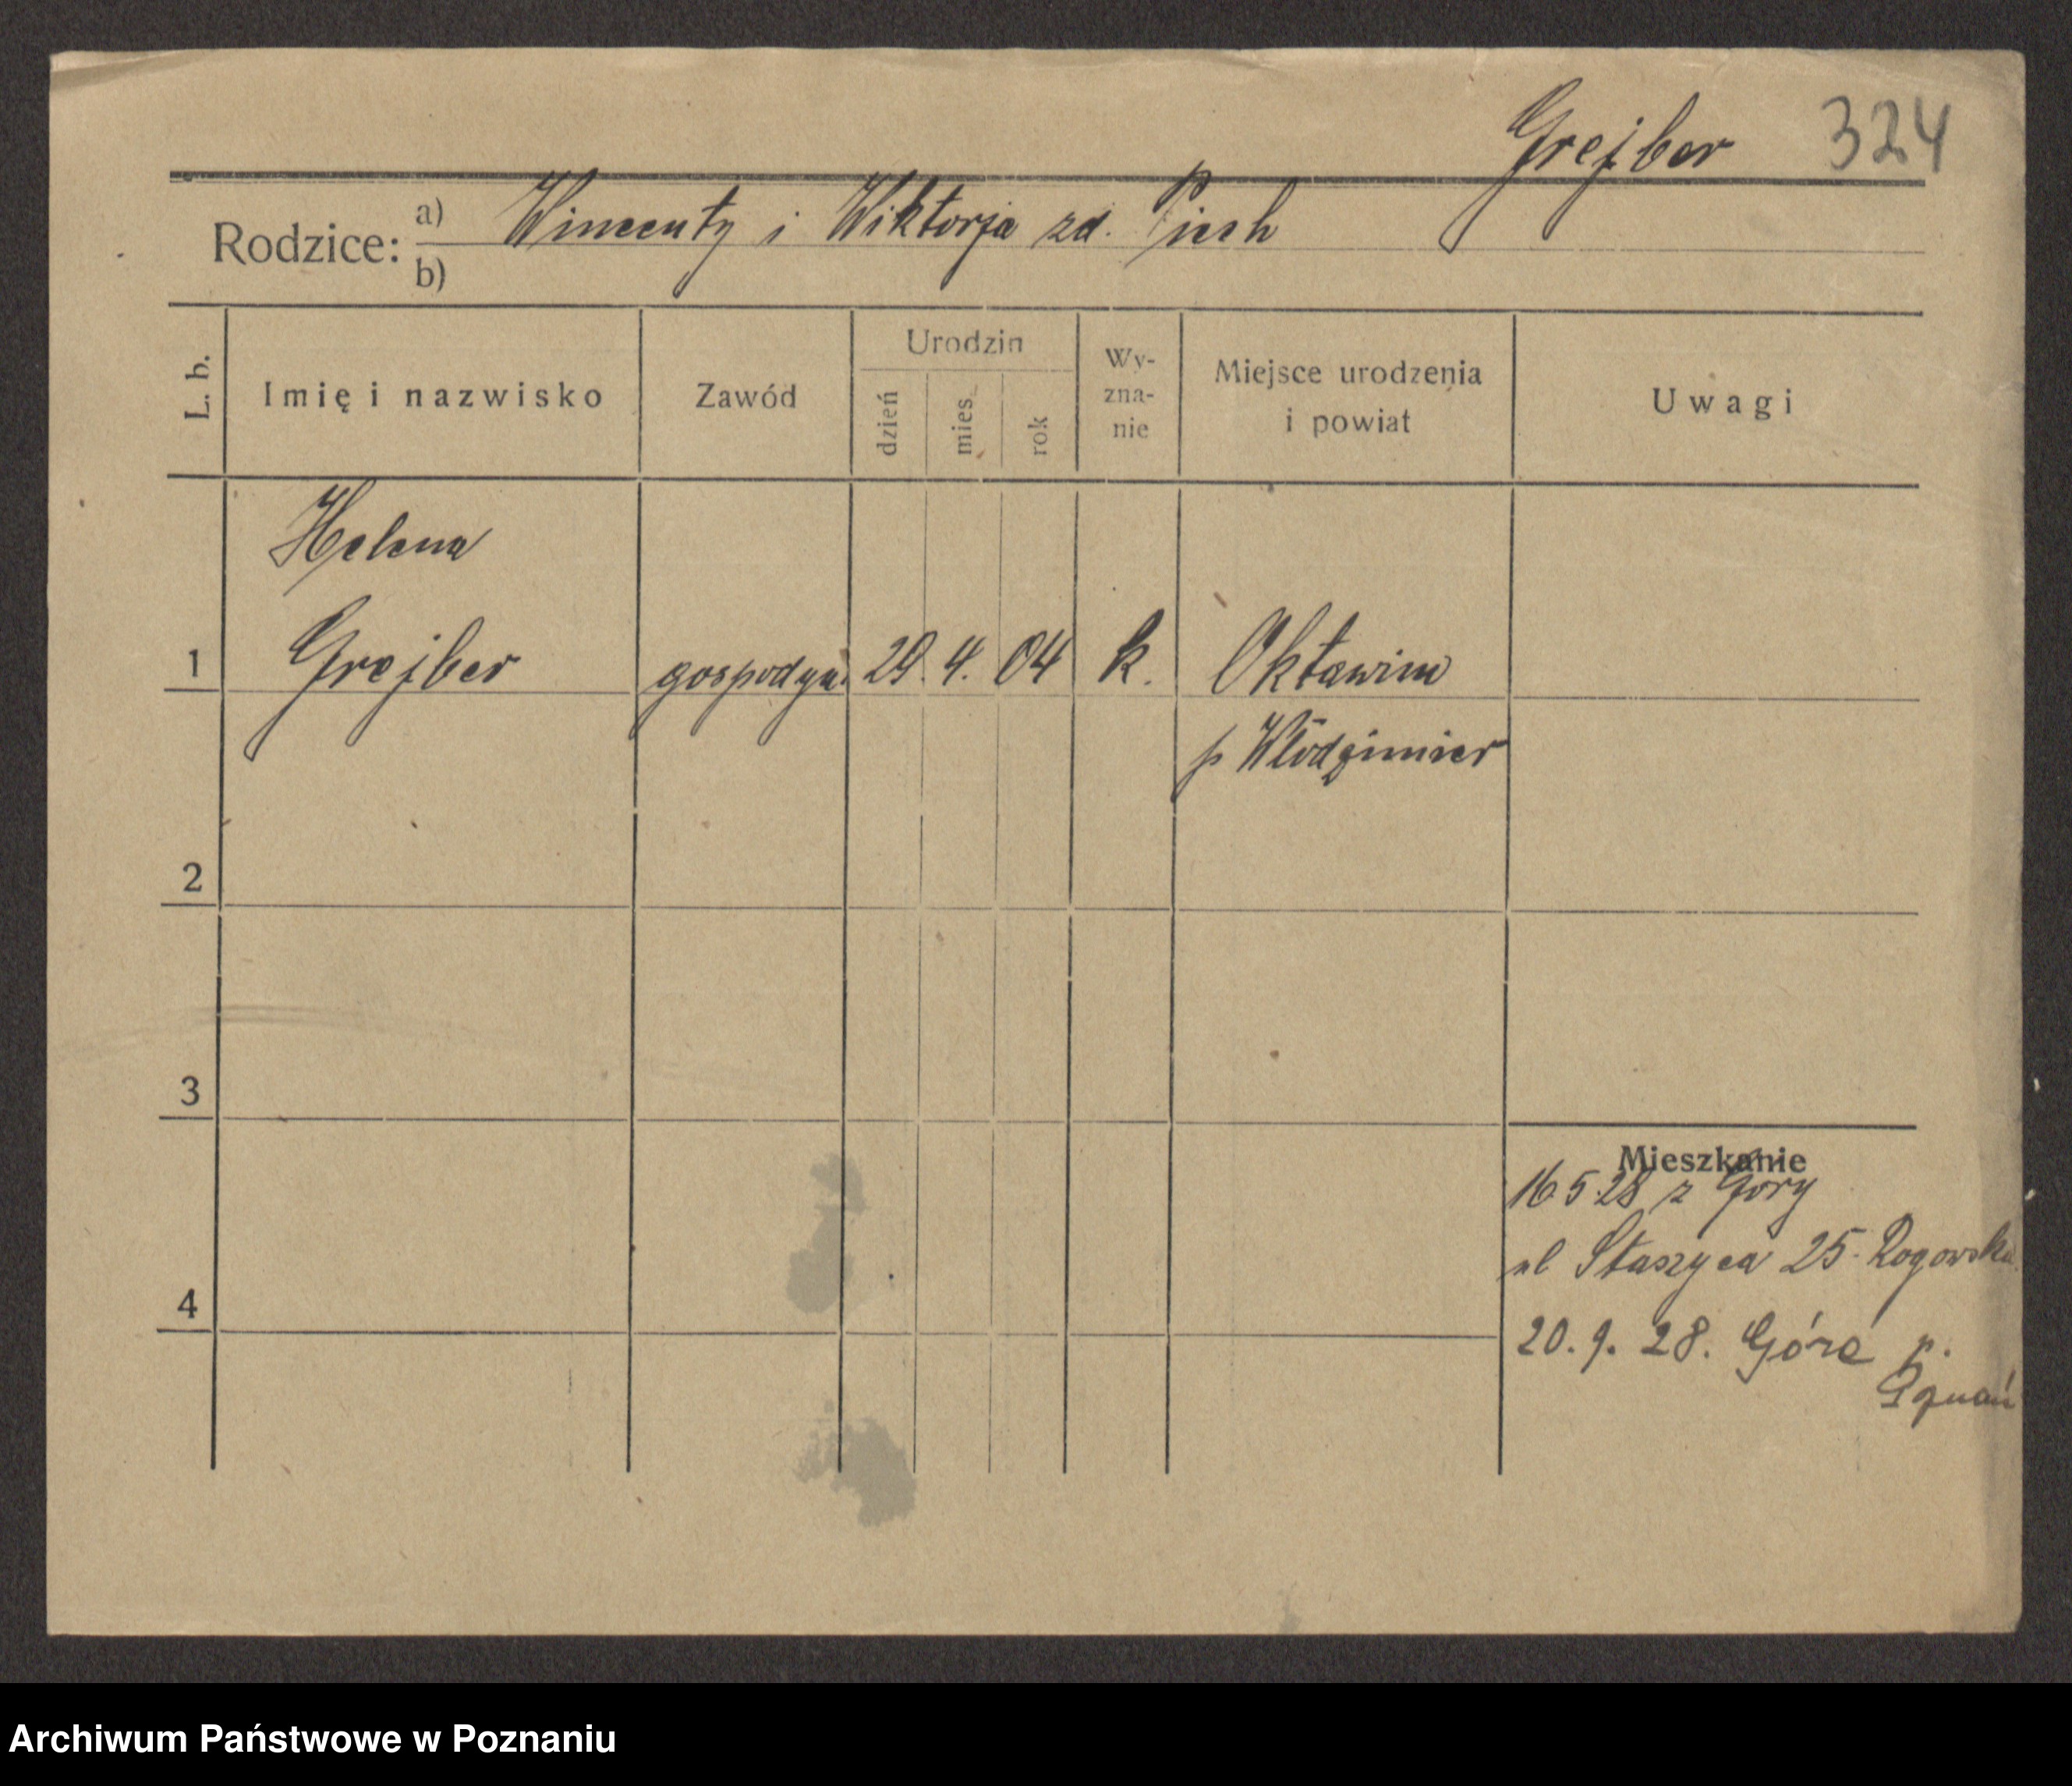 Grejber 324
Rodzice: a) Wincenty i Wiktorja zd. Piech
b)
L. b.
Imię i nazwisko
Zawód
Urodzin
dzień
mies.
rok
Wy-
zna-
nie
Miejsce urodzenia
i powiat
Uwagi
Helena
1 Grejber gospodyni 29. 4. 04 k. Oktawin
p Włodzimier
2
3
4
Mieszkanie
16.5.28 z Góry
ul Staszyca 25 Rogowska
20. 9. 28. Góra p.
Poznań
Archiwum Państwowe w Poznaniu